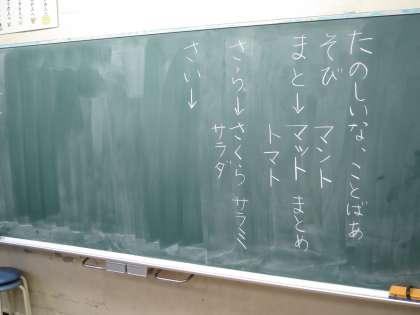 たのしいな、ことばあ
そび
まと→マット まとめ
マント
トマト
さら→さくら サラミ
サラダ
さい→